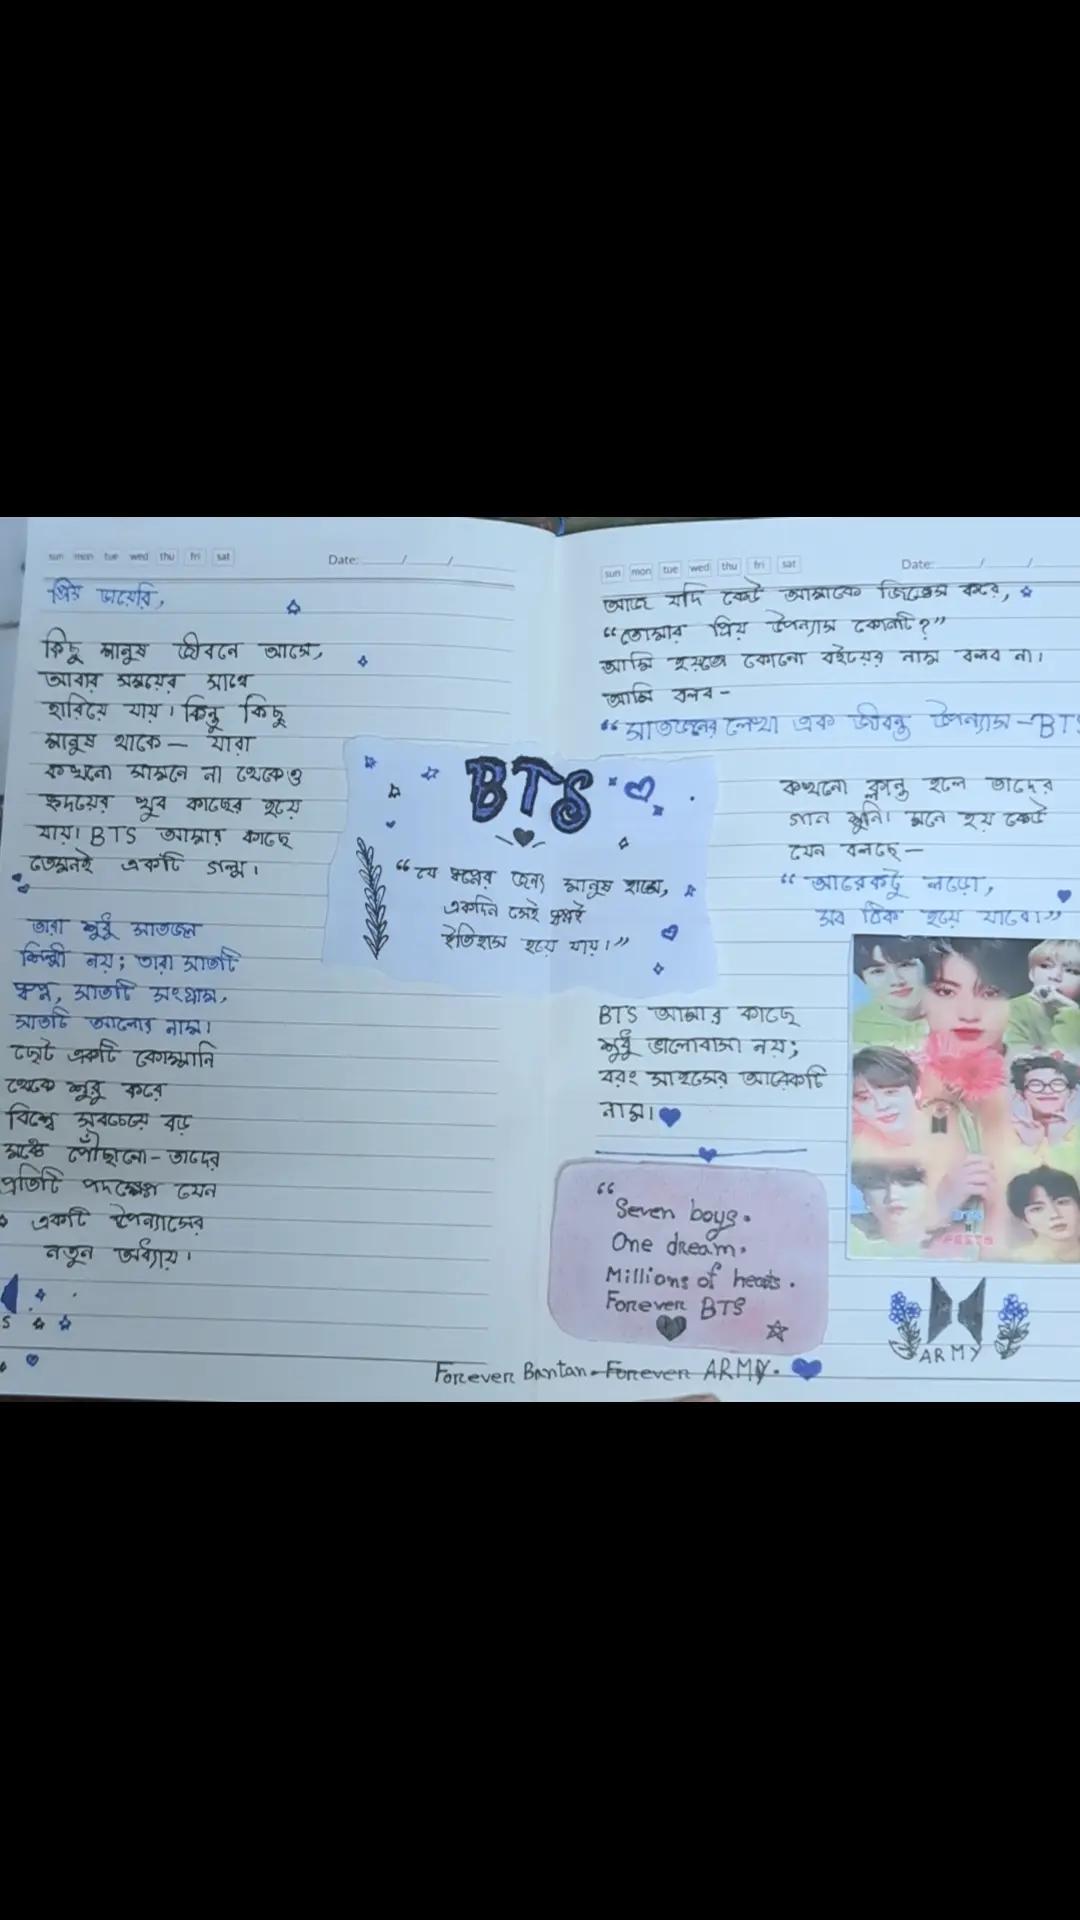 sun mon tue wed thu fri sat
Date: / /
প্রিয় ডায়েরি,
কিছু মানুষ জীবনে আসে,
আবার সময়ের সাথে
হারিয়ে যায়। কিন্তু কিছু
মানুষ থাকে — যারা
কখনো সামনে না থেকেও
হৃদয়ের খুব কাছের হয়ে
যায়। BTS আমার কাছে
তেমনই একটি গল্প।
তারা শুধু সাতজন
শিল্পী নয়; তারা সাতটি
স্বপ্ন, সাতটি সংগ্রাম,
সাতটি আলোর নাম।
ছোট একটি কোম্পানি
থেকে শুরু করে
বিশ্বে সবচেয়ে বড়
মঞ্চে পৌঁছানো - তাদের
প্রতিটি পদক্ষেপ যেন
একটি উপন্যাসের
নতুন অধ্যায়।
S
BTS
“যে স্বপ্নের জন্য মানুষ হাসে,
একদিন সেই স্বপ্নই
ইতিহাস হয়ে যায়।”
sun mon tue wed thu fri sat
Date: / /
আজ যদি কেউ আমাকে জিজ্ঞেস করে,
“তোমার প্রিয় উপন্যাস কোনটি?”
আমি হয়তো কোনো বইয়ের নাম বলব না।
আমি বলব -
“সাতজনের লেখা এক জীবন্ত উপন্যাস - BTS
কখনো ক্লান্ত হলে তাদের
গান শুনি। মনে হয় কেউ
যেন বলছে —
“আরেকটু লড়ো,
সব ঠিক হয়ে যাবে।”
BTS আমার কাছে
শুধু ভালোবাসা নয়;
বরং সাহসের আরেকটি
নাম।
“
Seven boys.
One dream.
Millions of hearts.
Forever BTS
FESTA
ARMY
Forever Bantan - Forever ARMY.